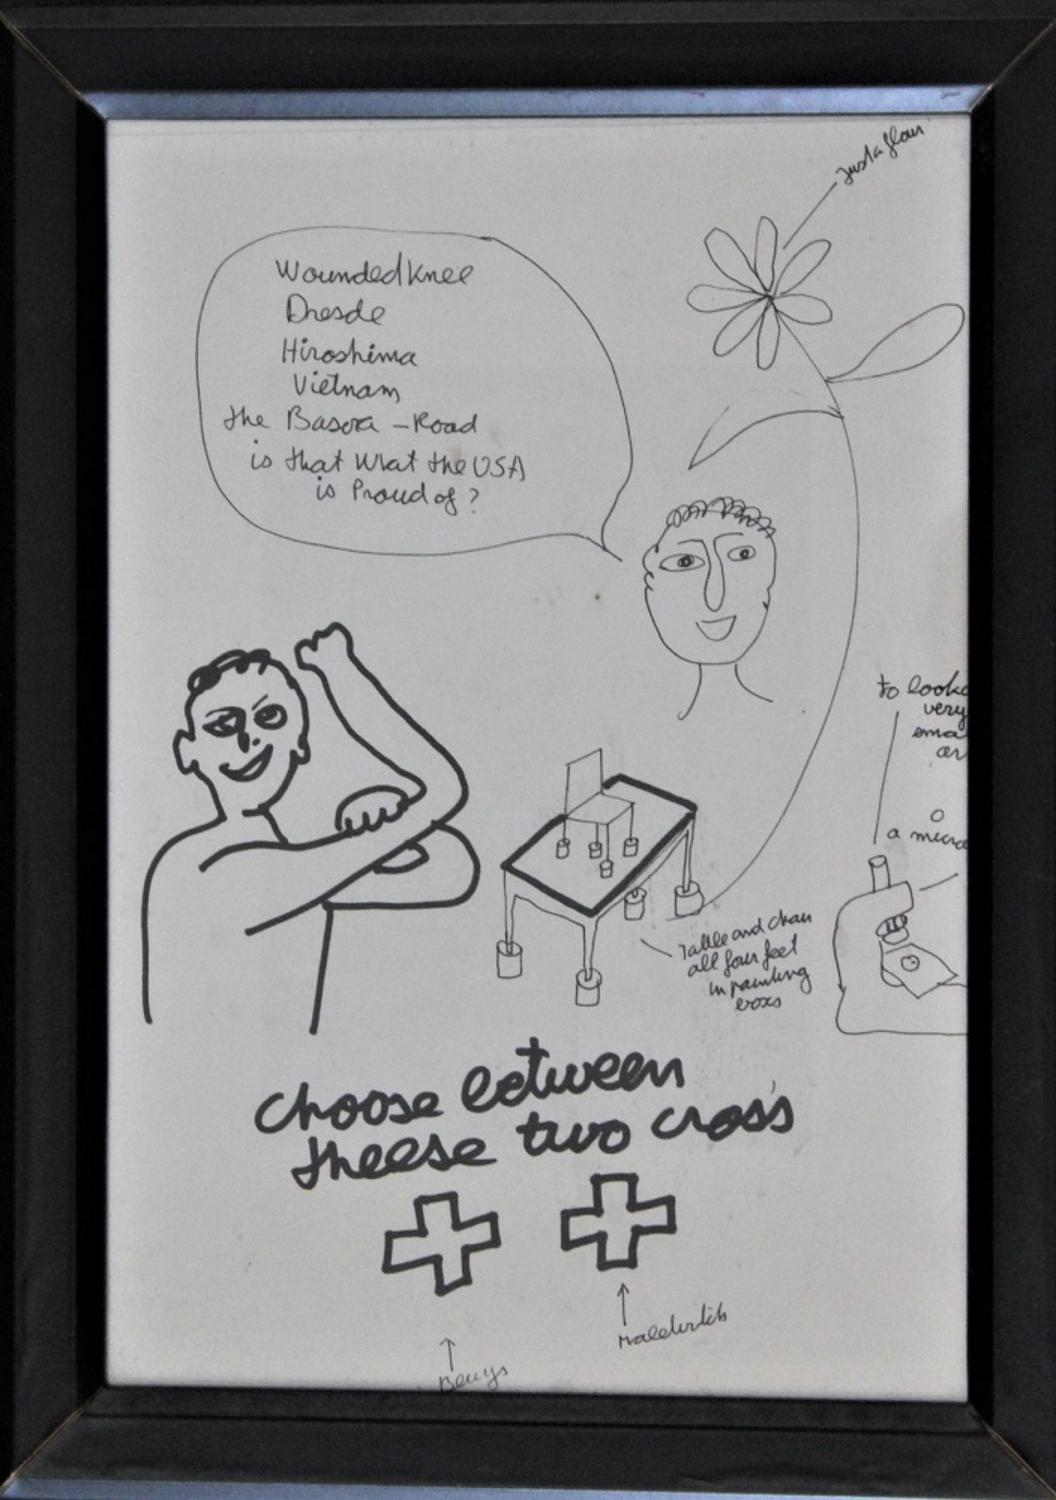 just a flour
Wounded Knee
Dresde
Hiroshima
Vietnam
the Basora - Road
is that What the USA
is Proud of ?
to look
very
sma
or
a micro
Table and chair
all four feet
in painting
choose between
theese two cross's
Beuys